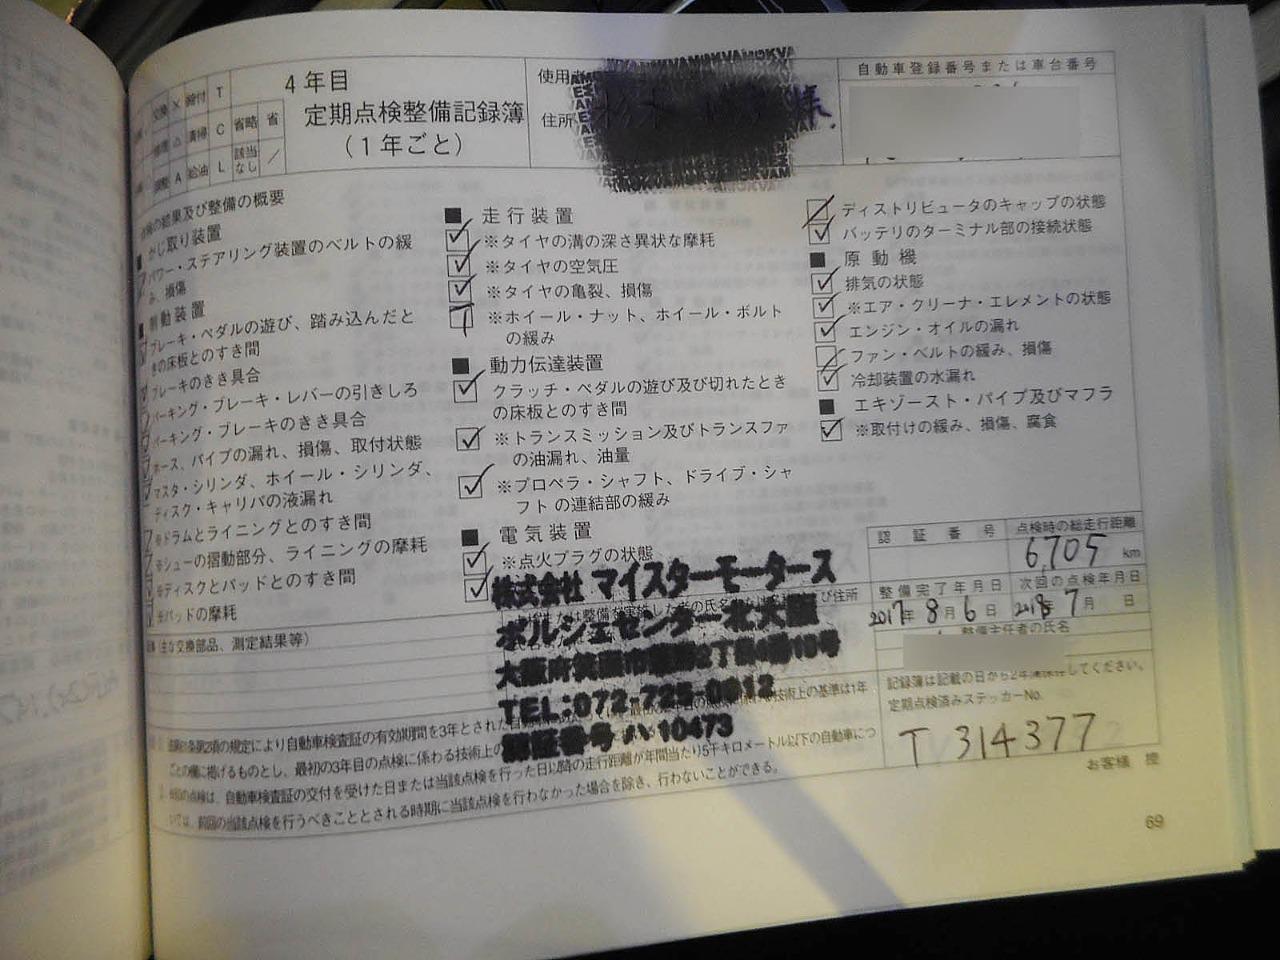 交換 × 締付 T
修理 △ 清掃 C 省略 省
調整 A 給油 L 該当なし ／
4年目
定期点検整備記録簿
(1年ごと)
使用者
住所
様
自動車登録番号または車台番号
の結果及び整備の概要
■ かじ取り装置
パワー・ステアリング装置のベルトの緩
み、損傷
■ 制動装置
ブレーキ・ペダルの遊び、踏み込んだと
きの床板とのすき間
ブレーキのきき具合
パーキング・ブレーキ・レバーの引きしろ
パーキング・ブレーキのきき具合
ホース、パイプの漏れ、損傷、取付状態
マスタ・シリンダ、ホイール・シリンダ、
ディスク・キャリパの液漏れ
※ドラムとライニングとのすき間
※シューの摺動部分、ライニングの摩耗
※ディスクとパッドとのすき間
※パッドの摩耗
■ 走行装置
※タイヤの溝の深さ異状な摩耗
※タイヤの空気圧
※タイヤの亀裂、損傷
T ※ホイール・ナット、ホイール・ボルト
の緩み
■ 動力伝達装置
クラッチ・ペダルの遊び及び切れたとき
の床板とのすき間
※トランスミッション及びトランスファ
の油漏れ、油量
※プロペラ・シャフト、ドライブ・シャ
フトの連結部の緩み
■ 電気装置
※点火プラグの状態
ディストリビュータのキャップの状態
バッテリのターミナル部の接続状態
■ 原動機
排気の状態
※エア・クリーナ・エレメントの状態
エンジン・オイルの漏れ
ファン・ベルトの緩み、損傷
冷却装置の水漏れ
■ エキゾースト・パイプ及びマフラ
※取付けの緩み、損傷、腐食
(主な交換部品、測定結果等)
株式会社 マイスターモータース
ポルシェセンター北大阪
大阪府箕面市2丁目4番13号
TEL:072-725-0912
認証番号 10473
認証番号
点検時の総走行距離
6,705 km
整備完了年月日
2017年 8月 6日
次回の点検年月日
2018年 7月 日
整備主任者の氏名
記録簿は記載の日から2年間保存してください。
定期点検済みステッカーNo.
T 314377
お客様 控
条第2項の規定により自動車検査証の有効期間を3年とされた自
技術上の基準は1年
ごとの欄に掲げるものとし、最初の3年目の点検に係わる技術上の
の点検は、自動車検査証の交付を受けた日または当該点検を行った日以降の走行距離が年間当たり5千キロメートル以下の自動車につ
いては、前回の当該点検を行うべきこととされる時期に当該点検を行わなかった場合を除き、行わないことができる。
69